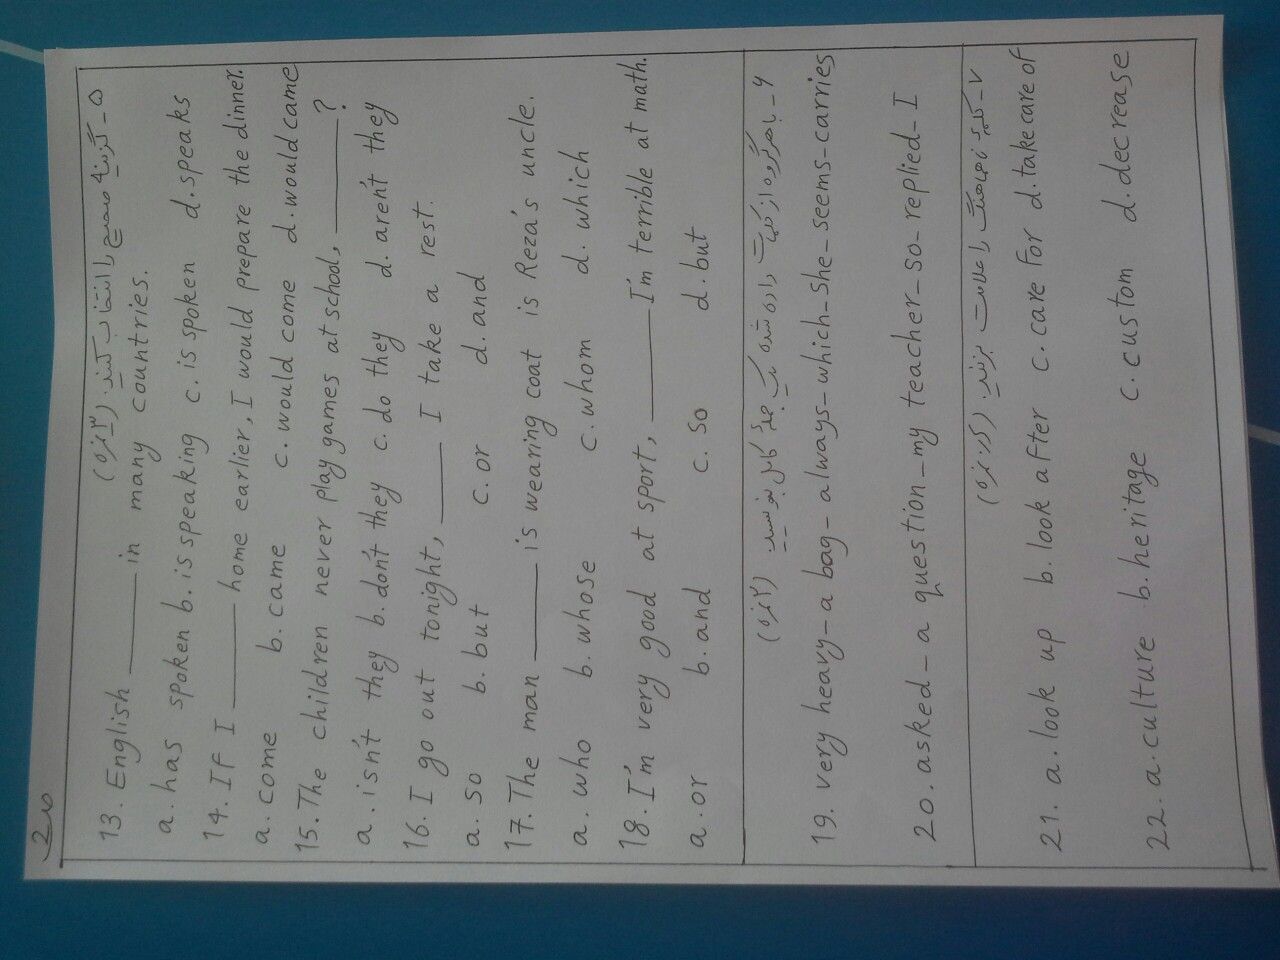 20
۵- گزینه صحیح را انتخاب کنید. (۳ نمره)
13. English ______ in many countries.
a. has spoken b. is speaking c. is spoken d. speaks
14. If I ______ home earlier, I would prepare the dinner.
a. come b. came c. would come d. would came
15. The children never play games at school, ______?
a. isn't they b. don't they c. do they d. aren't they
16. I go out tonight, ______ I take a rest.
a. so b. but c. or d. and
17. The man ______ is wearing coat is Reza's uncle.
a. who b. whose c. whom d. which
18. I'm very good at sport, ______ I'm terrible at math.
a. or b. and c. so d. but
۶- با هر گروه از کلمات داده شده یک جمله کامل بنویسید. (۲ نمره)
19. very heavy - a bag - always - which - she - seems - carries
20. asked - a question - my teacher - so - replied - I
۷- کلمه ناهماهنگ را علامت بزنید. (
21. a. look up b. look after c. care for d. take care of
22. a. culture b. heritage c. custom d. decrease